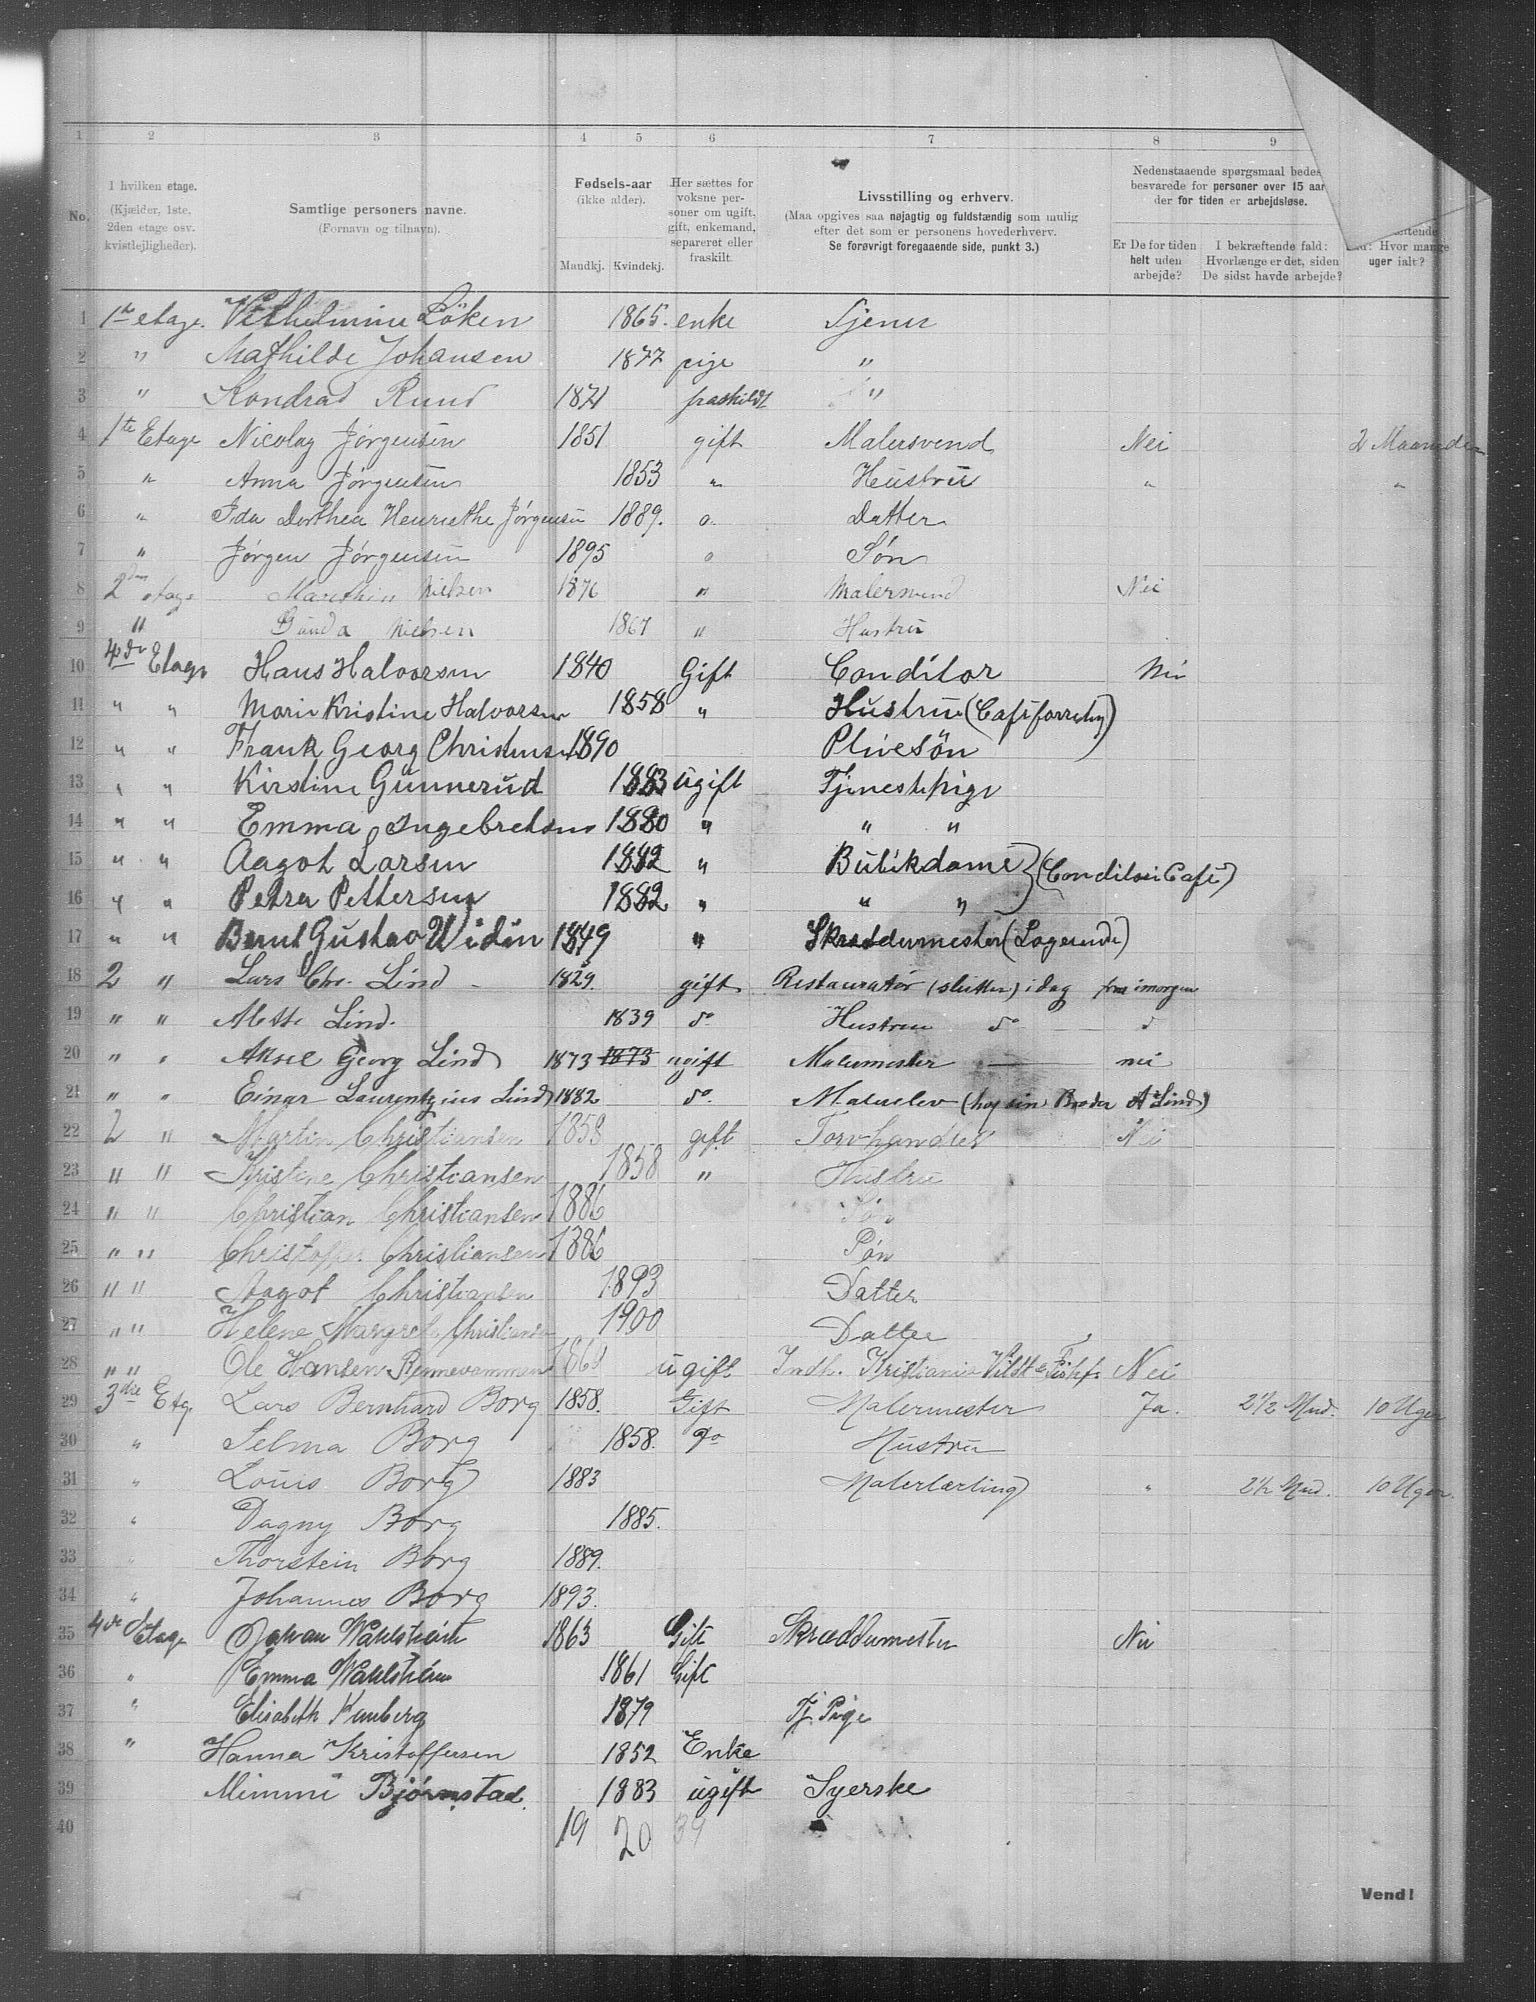 1 2 3 4 5 6 7 8 9
No.
I hvilken etage.
(Kjælder, 1ste, 2den etage osv. kvistlejligheder).
Samtlige personers navne.
(Fornavn og tilnavn).
Fødsels-aar
(ikke alder).
Mandkj. Kvindekj.
Her sættes for voksne personer om ugift, gift, enkemand, separeret eller fraskilt.
Livsstilling og erhverv.
(Maa opgives saa nøjagtig og fuldstændig som mulig efter det som er personens hovederhverv.
Se forøvrigt foregaaende side, punkt 3.)
Nedenstaaende spørgsmaal bedes besvarede for personer over 15 aar der for tiden er arbejdsløse.
Er De for tiden helt uden arbejde?
I bekræftende fald: Hvorlænge er det, siden De sidst havde arbejde?
Hvor mange uger ialt?
1 1ste etage. Vilhelmine Löken 1865. enke Tjener
2 " Mathilde Johansen 1877 pige "
3 " Kondrad Ruud 1871 fraskildt "
4 1te Etage Nicolay Jørgensen 1851 gift Malersvend Nei 2 Maaneder
5 " Anna Jørgensen 1853 " Hustru " "
6 " Ida Dorthea Henriethe Jørgensen 1889. o. Datter
7 " Jørgen Jørgensen 1895 o Søn
8 2den etage Nielsen 1876 " Malersvend Nei
9 " Gunda Nielsen 1867 " Hustru
10 4de Etage Hans Halvorsen 1840 Gift Conditor Nei
11 " " Marie Kristine Halvorsen 1858 " Hustru (Caféforretng)
12 " " Frank Georg Christensen 1890 Pleiesön
13 " " Kirstine Gunnerud 1883 ugift Tjenestepige
14 " " Emma Ingebretsen 1880 " " "
15 " " Aagot Larsen 1882 " Butikdame } (Conditori Café)
16 " " Petra Pettersen 1882 " " "
17 " " Bernt Gustav Widin 1849 " Skræddermester (Logerende)
18 2 " Lars Chr. Lind 1829. gift Restauratør (slutter) i dag fra imorgen
19 " " Mette Lind. 1839 do Hustru do
20 " " Aksel Georg Lind 1873 1873 ugift Malermester — nei
21 " " Einar Laurentzius Lind 1882 do Malerelev (hos sin Broder A Lind)
22 2 " Martin Christiansen 1858 gift Torvhandler Nei
23 " " Kristine Christiansen 1858 " Hustru
24 " " Christian Christiansen 1886 Søn
25 " " Christoffer Christiansen 1886 Søn
26 " " Aagot Christiansen 1893 Datter
27 " " Helene Margret Christiansen 1900 Datter
28 " " Ole Hansen ugift Indh. Kristiania Vildt & Fiskf. Nei
29 3die Etg. Lars Bernhard Borg 1858. Gift Malermester Ja. 2½ Mnd. 10 Uger
30 " Selma Borg 1858. do Hustru
31 " Louis Borg 1883 Malerlærling " 2½ Mnd. 10 Uger.
32 " Dagny Borg 1885.
33 " Thorstein Borg 1889.
34 " Johannes Borg 1893.
35 4de Etage Johan Wahlström 1863 Gift Skræddermester Nei
36 " Emma Wahlström 1861 Gift
37 " Elisabeth 1879 Tj. Pige
38 " Hanna Kristoffersen 1852 Enke
39 Mimmi Bjørnstad. 1883 ugift Syerske
40 19 20 39
Vend!